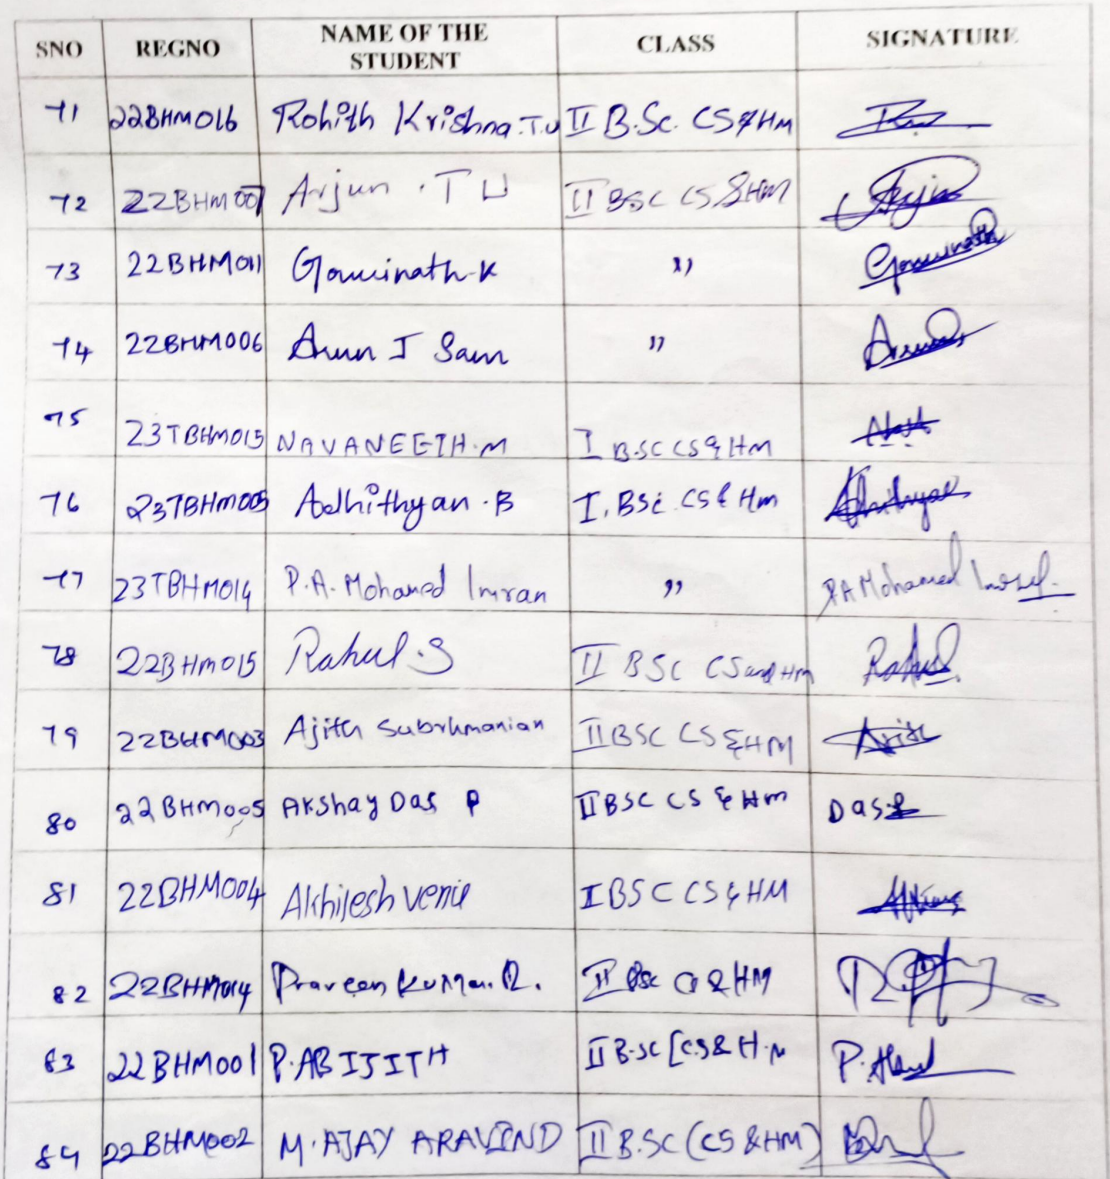 SNO REGNO NAME OF THE STUDENT CLASS SIGNATURE
71 22BHM016 Rohith Krishna.T.U II B.Sc. CS&HM
72 22BHM007 Arjun . T U II BSC CS &HM
73 22BHM011 Gowrinath.K ,,
74 22BHM006 Arun J Sam ,,
75 23TBHM015 NAVANEETH.M I BSC CS & HM
76 23TBHM005 Adhithyan.B I. BSc. CS & Hm
77 23TBHM014 P.A. Mohamed Imran ,, P.A Mohamed
78 22BHM015 Rahul.S II BSC CS and HM Rahul
79 22BHM003 Ajith Subrhmanian II BSC CS & HM
80 22BHM005 Akshay Das P II BSC CS & Hm Das
81 22BHM004 Akhilesh Venu I BSC CS & HM
82 22BHM014 Praveen Kumar. R. II Bsc CS & HM
83 22BHM001 P.ABIJITH II B.SC [CS & H.M
84 22BHM002 M.AJAY ARAVIND II B.SC (CS &HM)